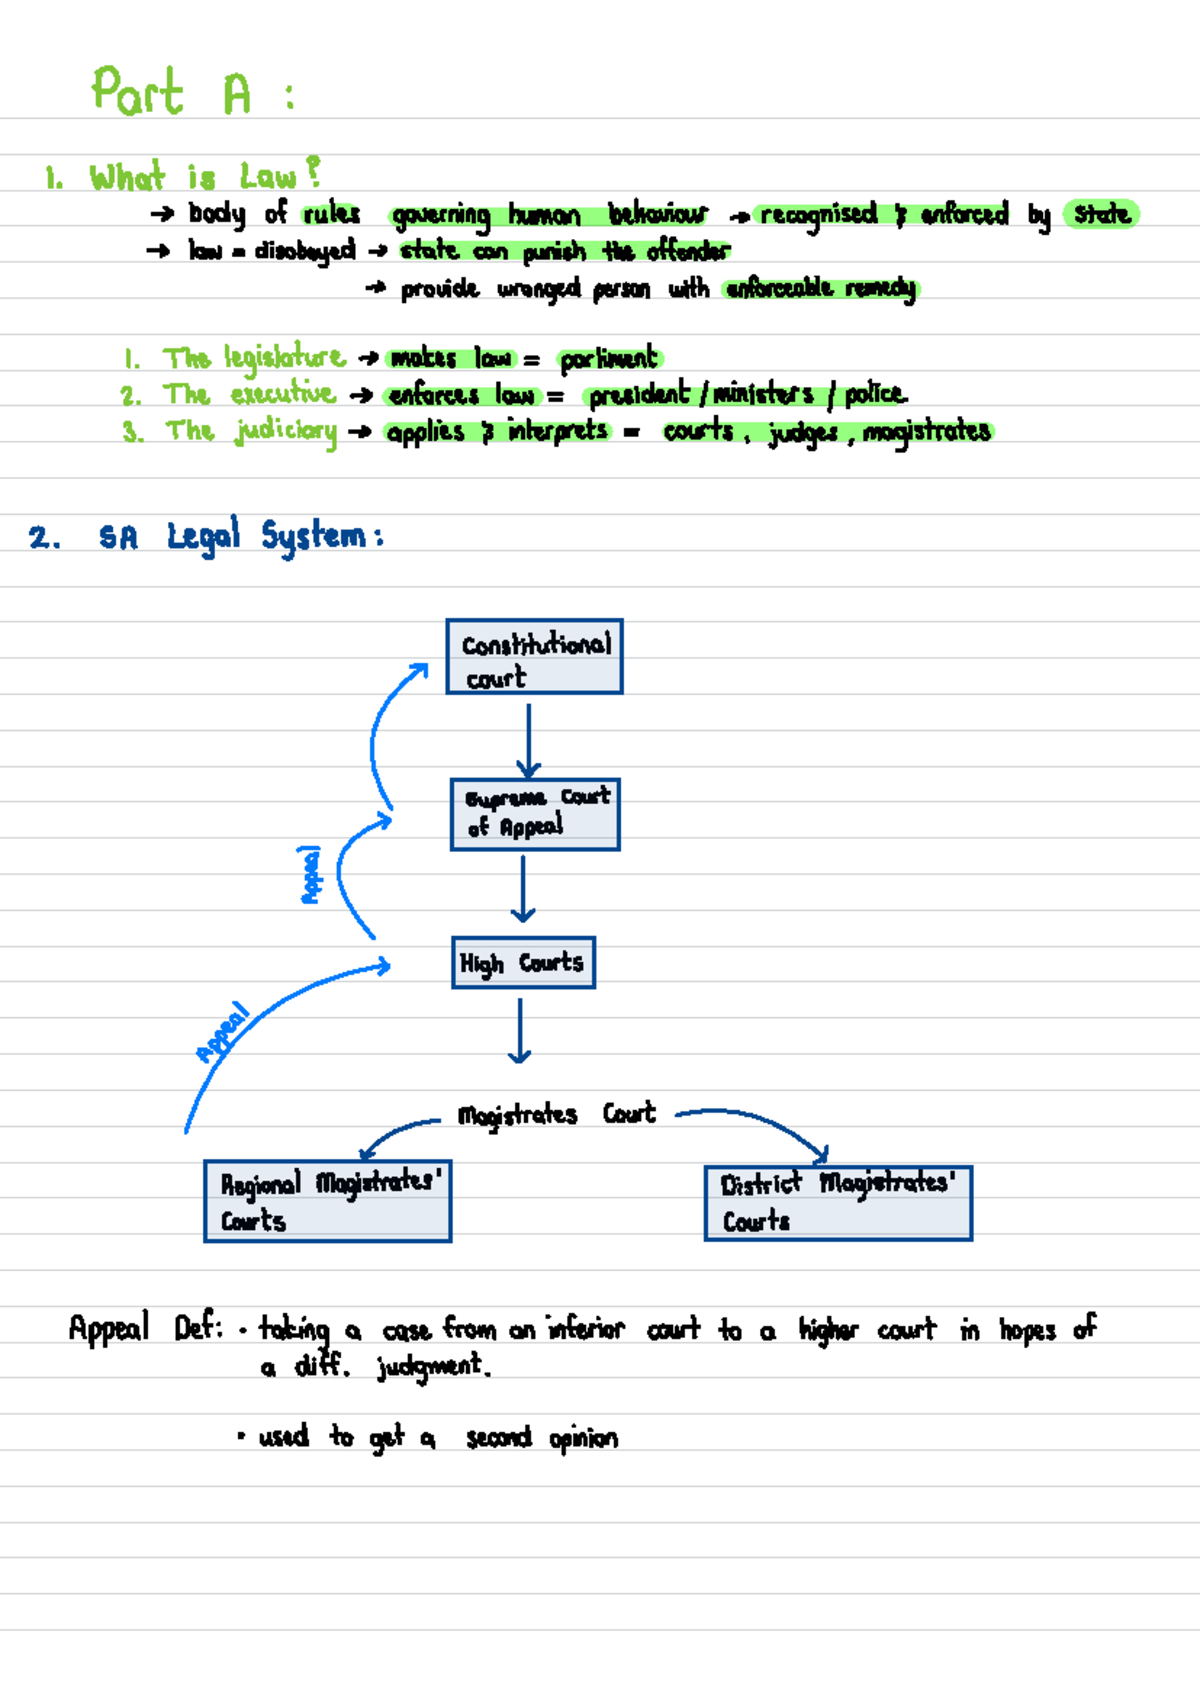 Part A :
1. What is Law?
→ body of rules governing human behaviour → recognised & enforced by state
→ law = disobeyed → state can punish the offender
→ provide wronged person with enforceable remedy
1. The legislature → makes law = parliment
2. The executive → enforces law = president / ministers / police
3. The judiciary → applies & interprets = courts, judges, magistrates
2. SA Legal System:
Constitutional
court
Supreme Court
of Appeal
Appeal
High Courts
Appeal
Magistrates Court
Regional Magistrates'
Courts
District Magistrates'
Courts
Appeal Def: • taking a case from an inferior court to a higher court in hopes of
a diff. judgment.
• used to get a second opinion